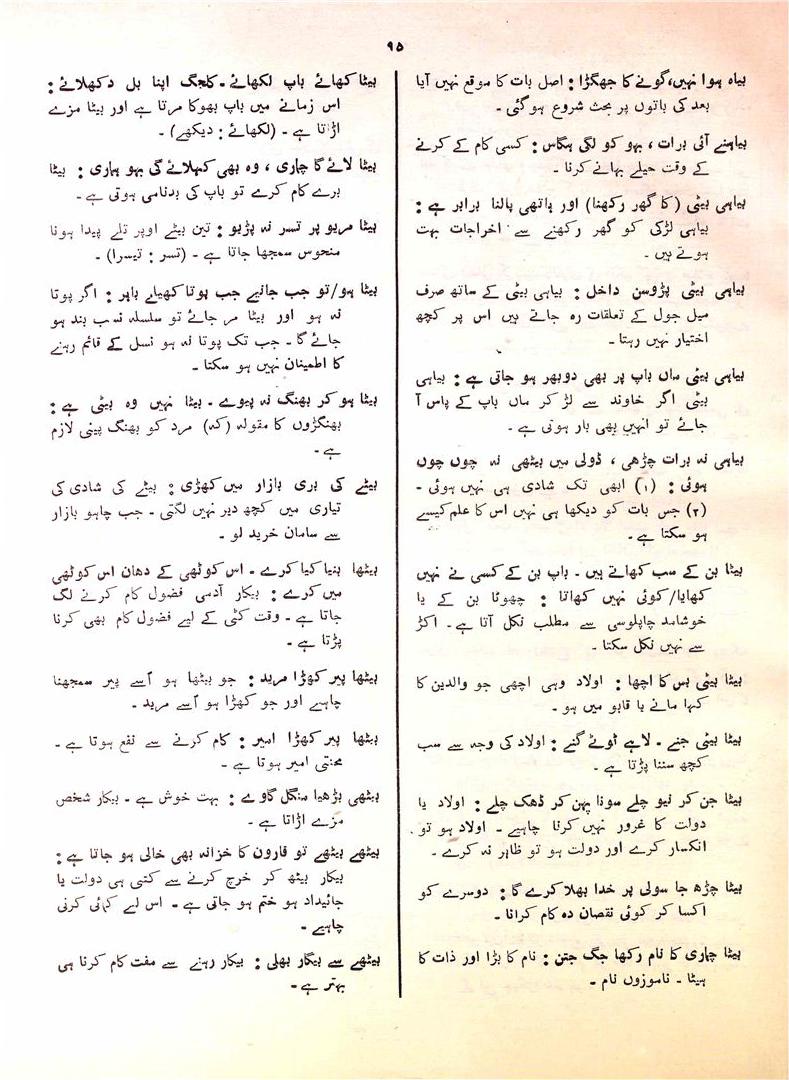 ۹۵
بیاہ ہوا نہیں، گونے کا جھگڑا : اصل بات کا موقع نہیں آیا
بعد کی باتوں پر بحث شروع ہو گئی ۔
بیاہنے آئی برات ، بہو کو لگی ہگاس : کسی کام کے کرنے
کے وقت حیلے بہانے کرنا ۔
بیاہی بیٹی (کا گھر رکھنا) اور ہاتھی پالنا برابر ہے :
بیاہی لڑکی کو گھر رکھنے سے اخراجات بہت
ہوتے ہیں ۔
بیاہی بیٹی پڑوسن داخل : بیاہی بیٹی کے ساتھ صرف
میل جول کے تعلقات رہ جاتے ہیں اس پر کچھ
اختیار نہیں رہتا ۔
بیاہی بیٹی ماں باپ پر بھی دوبھر ہو جاتی ہے : بیاہی
بیٹی اگر خاوند سے لڑ کر ماں باپ کے پاس آ
جائے تو انہیں بھی بار ہوتی ہے ۔
بیاہی نہ برات چڑھی ، ڈولی میں بیٹھی نہ چوں چوں
ہوئی : (۱) ابھی تک شادی ہی نہیں ہوئی ۔
(۲) جس بات کو دیکھا ہی نہیں اس کا علم کیسے
ہو سکتا ہے ۔
بیٹا بن کے سب کھاتے ہیں ۔ باپ بن کے کسی نے نہیں
کھایا/کوئی نہیں کھاتا : چھوٹا بن کے یا
خوشامد چاپلوسی سے مطلب نکل آتا ہے ۔ اکڑ
سے نہیں نکل سکتا ۔
بیٹا بیٹی بس کا اچھا : اولاد وہی اچھی جو والدین کا
کہا مانے یا قابو میں ہو ۔
بیٹا بیٹی جنے ۔ لاہے ٹوٹے گنے : اولاد کی وجہ سے سب
کچھ سننا پڑتا ہے ۔
بیٹا جن کر نیو چلے سونا پہن کر ڈھک چلے : اولاد یا
دولت کا غرور نہیں کرنا چاہیے ۔ اولاد ہو تو
انکسار کرے اور دولت ہو تو ظاہر نہ کرے ۔
بیٹا چڑھ جا سولی پر خدا بھلا کرے گا : دوسرے کو
اکسا کر کوئی نقصان دہ کام کرانا ۔
بیٹا چاری کا نام رکھا جگ جتن : نام کا بڑا اور ذات کا
ہیٹا ۔ ناموزوں نام ۔
بیٹا کھائے باپ لکھائے ۔ کلجگ اپنا بل دکھلائے :
اس زمانے میں باپ بھوکا مرتا ہے اور بیٹا مزے
اڑاتا ہے ۔ (لکھائے : دیکھے) ۔
بیٹا لائے گا چاری ، وہ بھی کہلائے گی بہو ہاری : بیٹا
برے کام کرے تو باپ کی بدنامی ہوتی ہے ۔
بیٹا مریو پر تسر نہ پڑیو : تین بیٹے اوپر تلے پیدا ہونا
منحوس سمجھا جاتا ہے ۔ (تسر : تیسرا) ۔
بیٹا ہو/تو جب جانیے جب پوتا کھیلے باہر : اگر پوتا
نہ ہو اور بیٹا مر جائے تو سلسلہ نسب بند ہو
جائے گا ۔ جب تک پوتا نہ ہو نسل کے قائم رہنے
کا اطمینان نہیں ہو سکتا ۔
بیٹا ہو کر بھنگ نہ پیوے ۔ بیٹا نہیں وہ بیٹی ہے :
بھنگڑوں کا مقولہ (کہ) مرد کو بھنگ پینی لازم
ہے ۔
بیٹے کی بری بازار میں کھڑی : بیٹے کی شادی کی
تیاری میں کچھ دیر نہیں لگتی ۔ جب چاہو بازار
سے سامان خرید لو ۔
بیٹھا بنیا کیا کرے ۔ اس کوٹھی کے دھان اس کوٹھی
میں کرے : بیکار آدمی فضول کام کرنے لگ
جاتا ہے ۔ وقت کٹی کے لیے فضول کام بھی کرنا
پڑتا ہے ۔
بیٹھا پیر کھڑا مرید : جو بیٹھا ہو اُسے پیر سمجھنا
چاہیے اور جو کھڑا ہو اُسے مرید ۔
بیٹھا پیر کھڑا امیر : کام کرنے سے نفع ہوتا ہے ۔
محنتی امیر ہوتا ہے ۔
بیٹھی بڑھیا منگل گاوے : بہت خوش ہے ۔ بیکار شخص
مزے اڑاتا ہے ۔
بیٹھے بیٹھے تو قارون کا خزانہ بھی خالی ہو جاتا ہے :
بیکار بیٹھ کر خرچ کرنے سے کتنی ہی دولت یا
جائیداد ہو ختم ہو جاتی ہے ۔ اس لیے کمائی کرنی
چاہیے ۔
بیٹھے سے بیگار بھلی : بیکار رہنے سے مفت کام کرنا ہی
بہتر ہے ۔